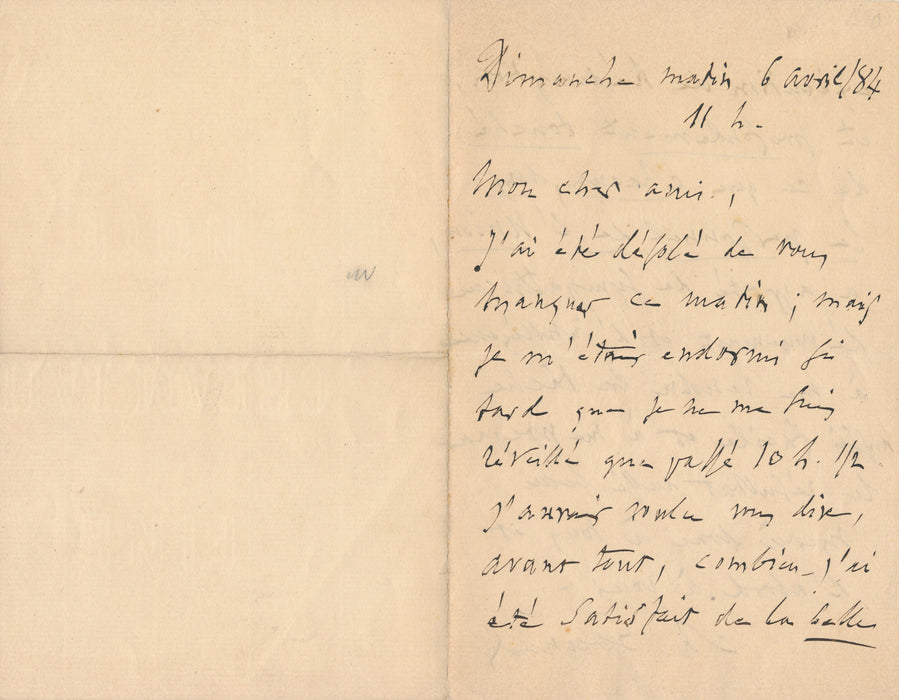 Dimanche matin 6 avril/84
11 h.
Mon cher ami,
J'ai été désolé de vous
manquer ce matin ; mais
je m'étais endormi si
tard que je ne me suis
réveillé que passé 10 h. 1/2
J'aurais voulu vous dire,
avant tout, combien j'ai
été satisfait de la belle